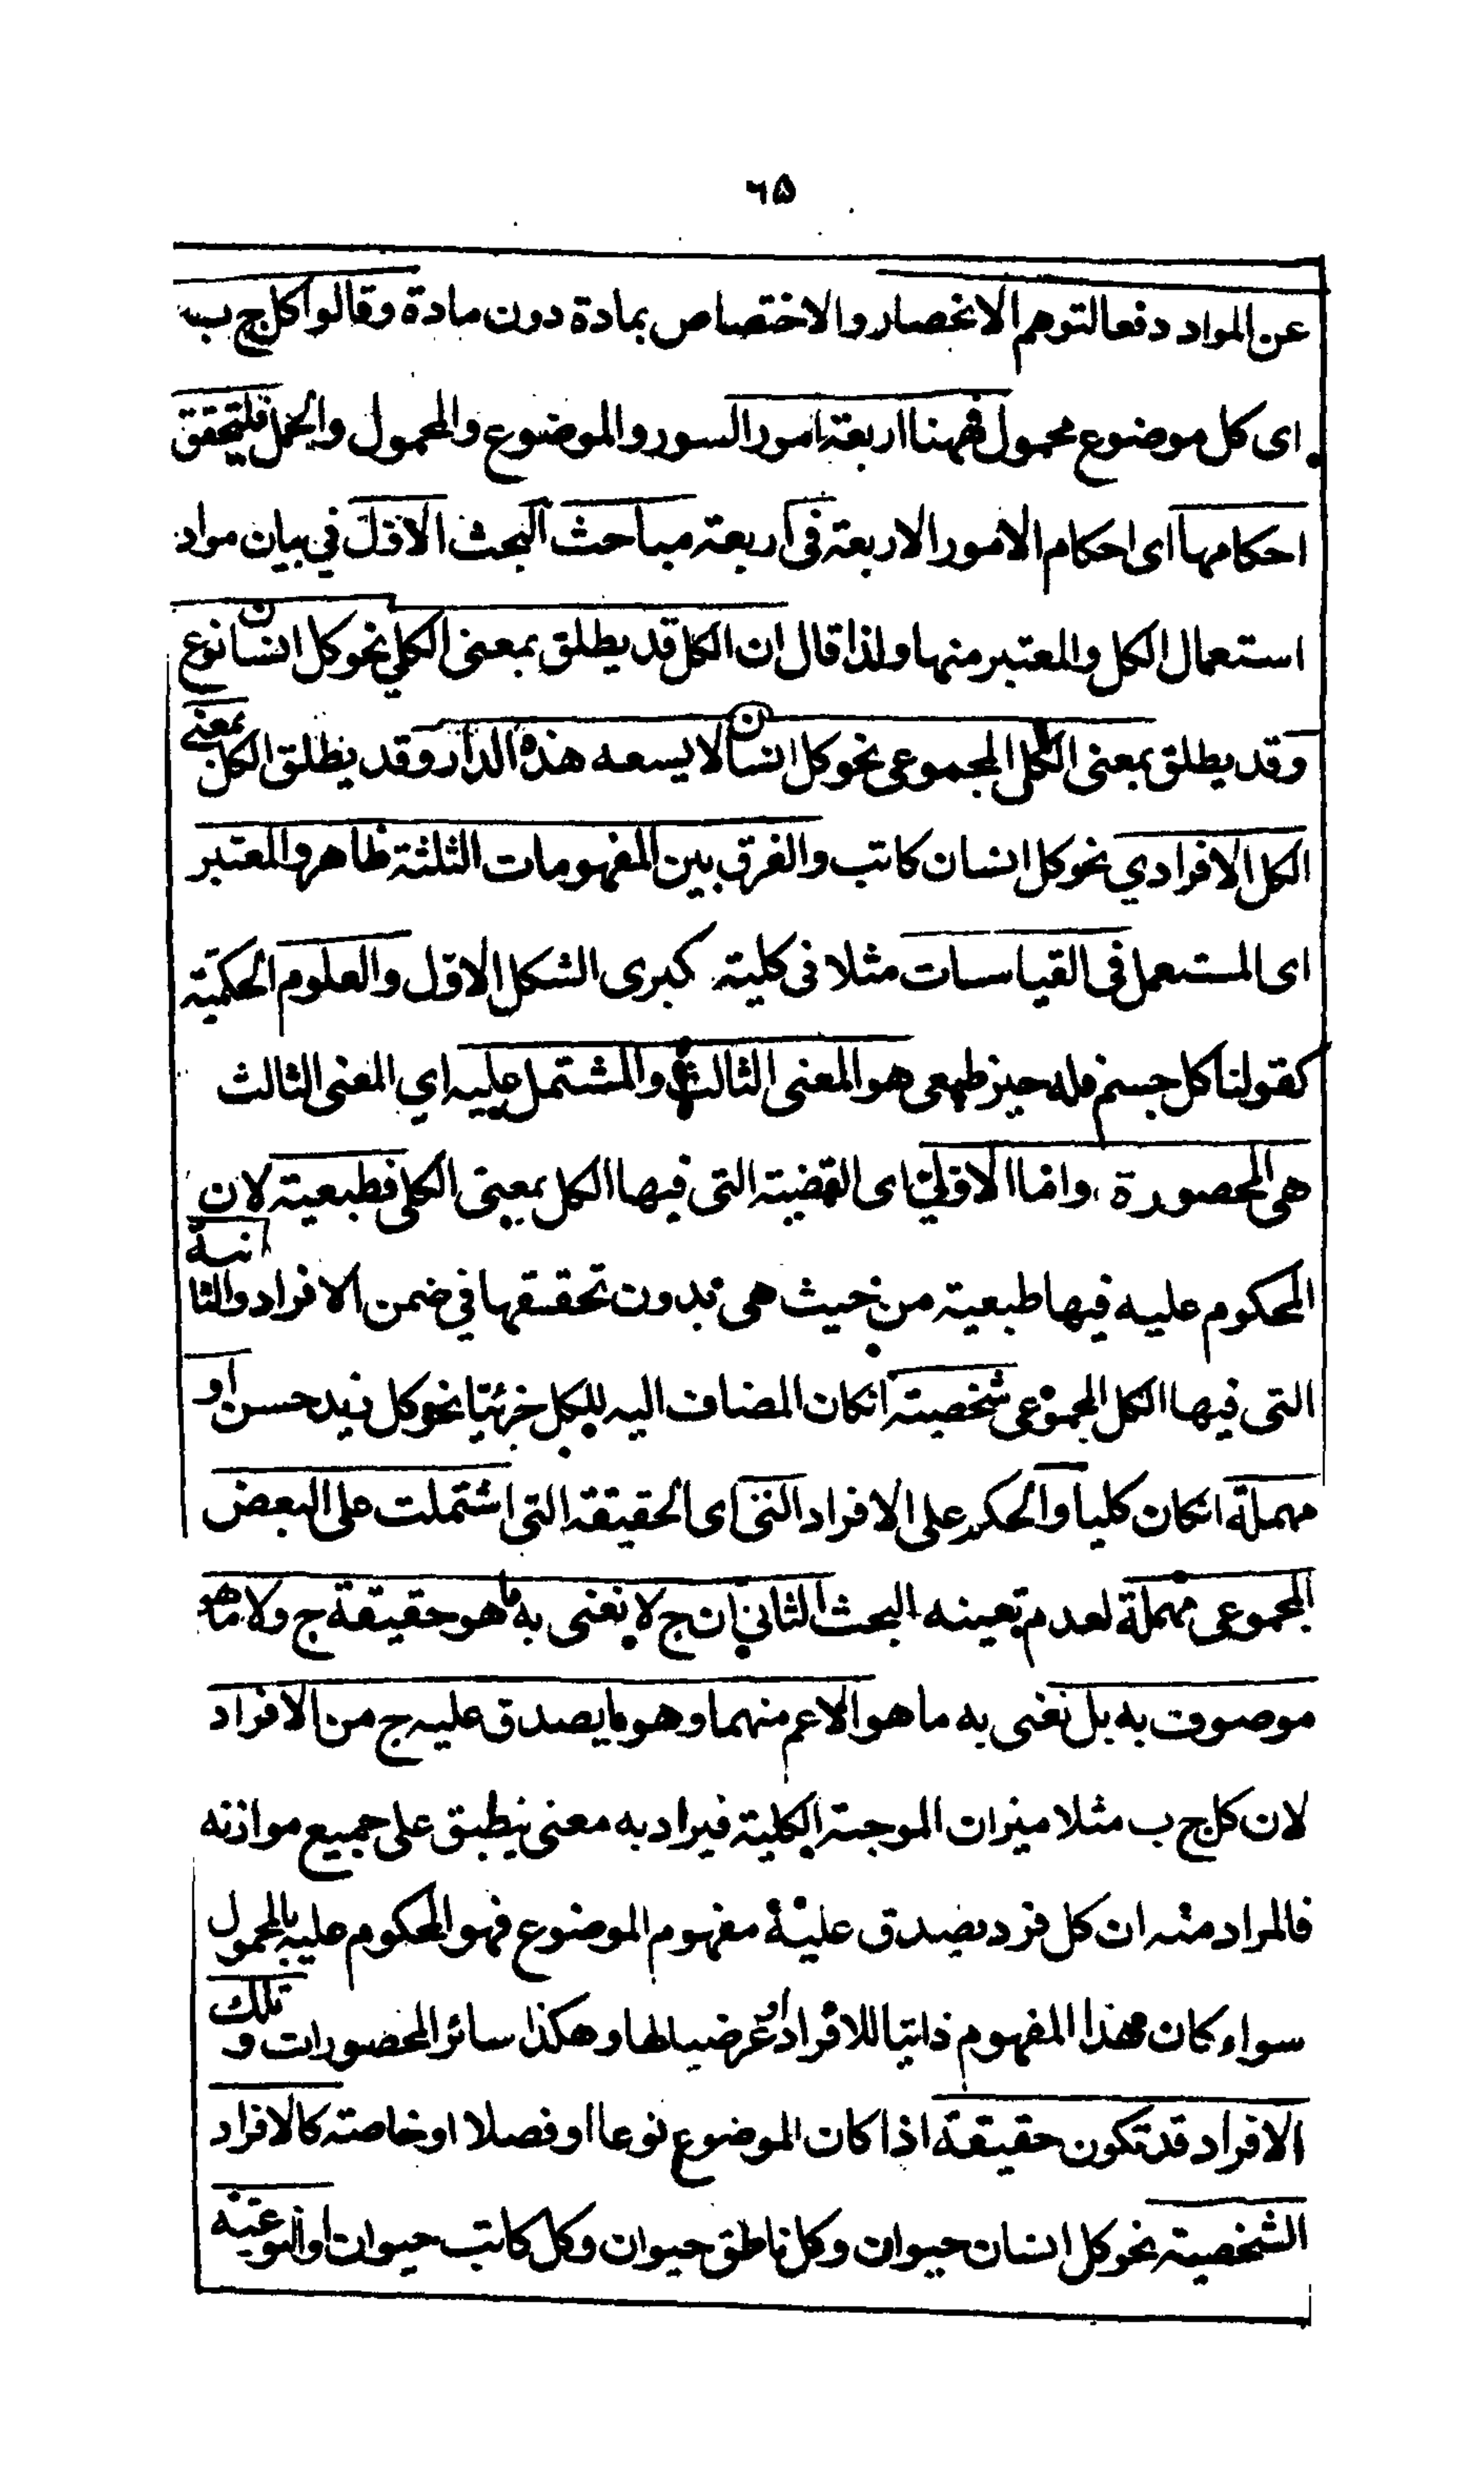 ٦۵
عن المواد دفعا لتوهم الانحصار والاختصاص بمادة دون مادة وقالوا كل ج ب
اى كل موضوع محمول فههنا اربعة امور السور والموضوع والمحمول والحمل فلتحقق
احكامها اى احكام الامور الاربعة فى اربعة مباحث البحث الاول في بيان مواد
استعمال الكل والمعتبر منها ولذا قال ان الكل قد يطلق بمعنى الكلي نحو كل انسان نوع
وقد يطلق بمعنى الكل المجموعى نحو كل انسان لا يسعه هذه الدار وقد يطلق الكل بمعنى
الكل الافرادي نحو كل انسان كاتب والفرق بين المفهومات الثلثة ظاهر والمعتبر
اى المستعمل فى القياسات مثلا فى كلية كبرى الشكل الاول والعلوم الحكمية
كقولنا كل جسم فله حيز طبعى هو المعنى الثالث والمشتمل عليه اي المعنى الثالث
هى المحصورة واما الاولى اى القضية التى فيها الكل بمعنى الكلى فطبعية لان
المحكوم عليه فيها طبعية من حيث هى بدون تحققها في ضمن الافراد والثانية
التى فيها الكل المجموعى شخصية انكان المضاف اليه للكل جزئيا نحو كل زيد حسن او
مهملة انكان كليا والحكم على الافراد اى الحقيقة التى اشتملت على البعض
المجموعى مهملة لعدم تعينه البحث الثاني ان ج لا نعنى به ما هو حقيقة ج ولا ما هو
موصوف به بل نعنى به ما هو الاعم منهما وهو ما يصدق عليه ج من الافراد
لان كل ج ب مثلا ميزان الموجبة الكلية فيراد به معنى ينطبق على جميع موازنه
فالمراد منه ان كل فرد يصدق عليه مفهوم الموضوع فهو المحكوم عليه بالمحمول
سواء كان هذا المفهوم ذاتيا للافراد او عرضيا لها وهكذا سائر المحصورات و تلك
الافراد قد تكون حقيقة اذا كان الموضوع نوعا او فصلا او خاصته كالافراد
الشخصية نحو كل انسان حيوان وكل ناطق حيوان وكل كاتب حيوان او النوعية